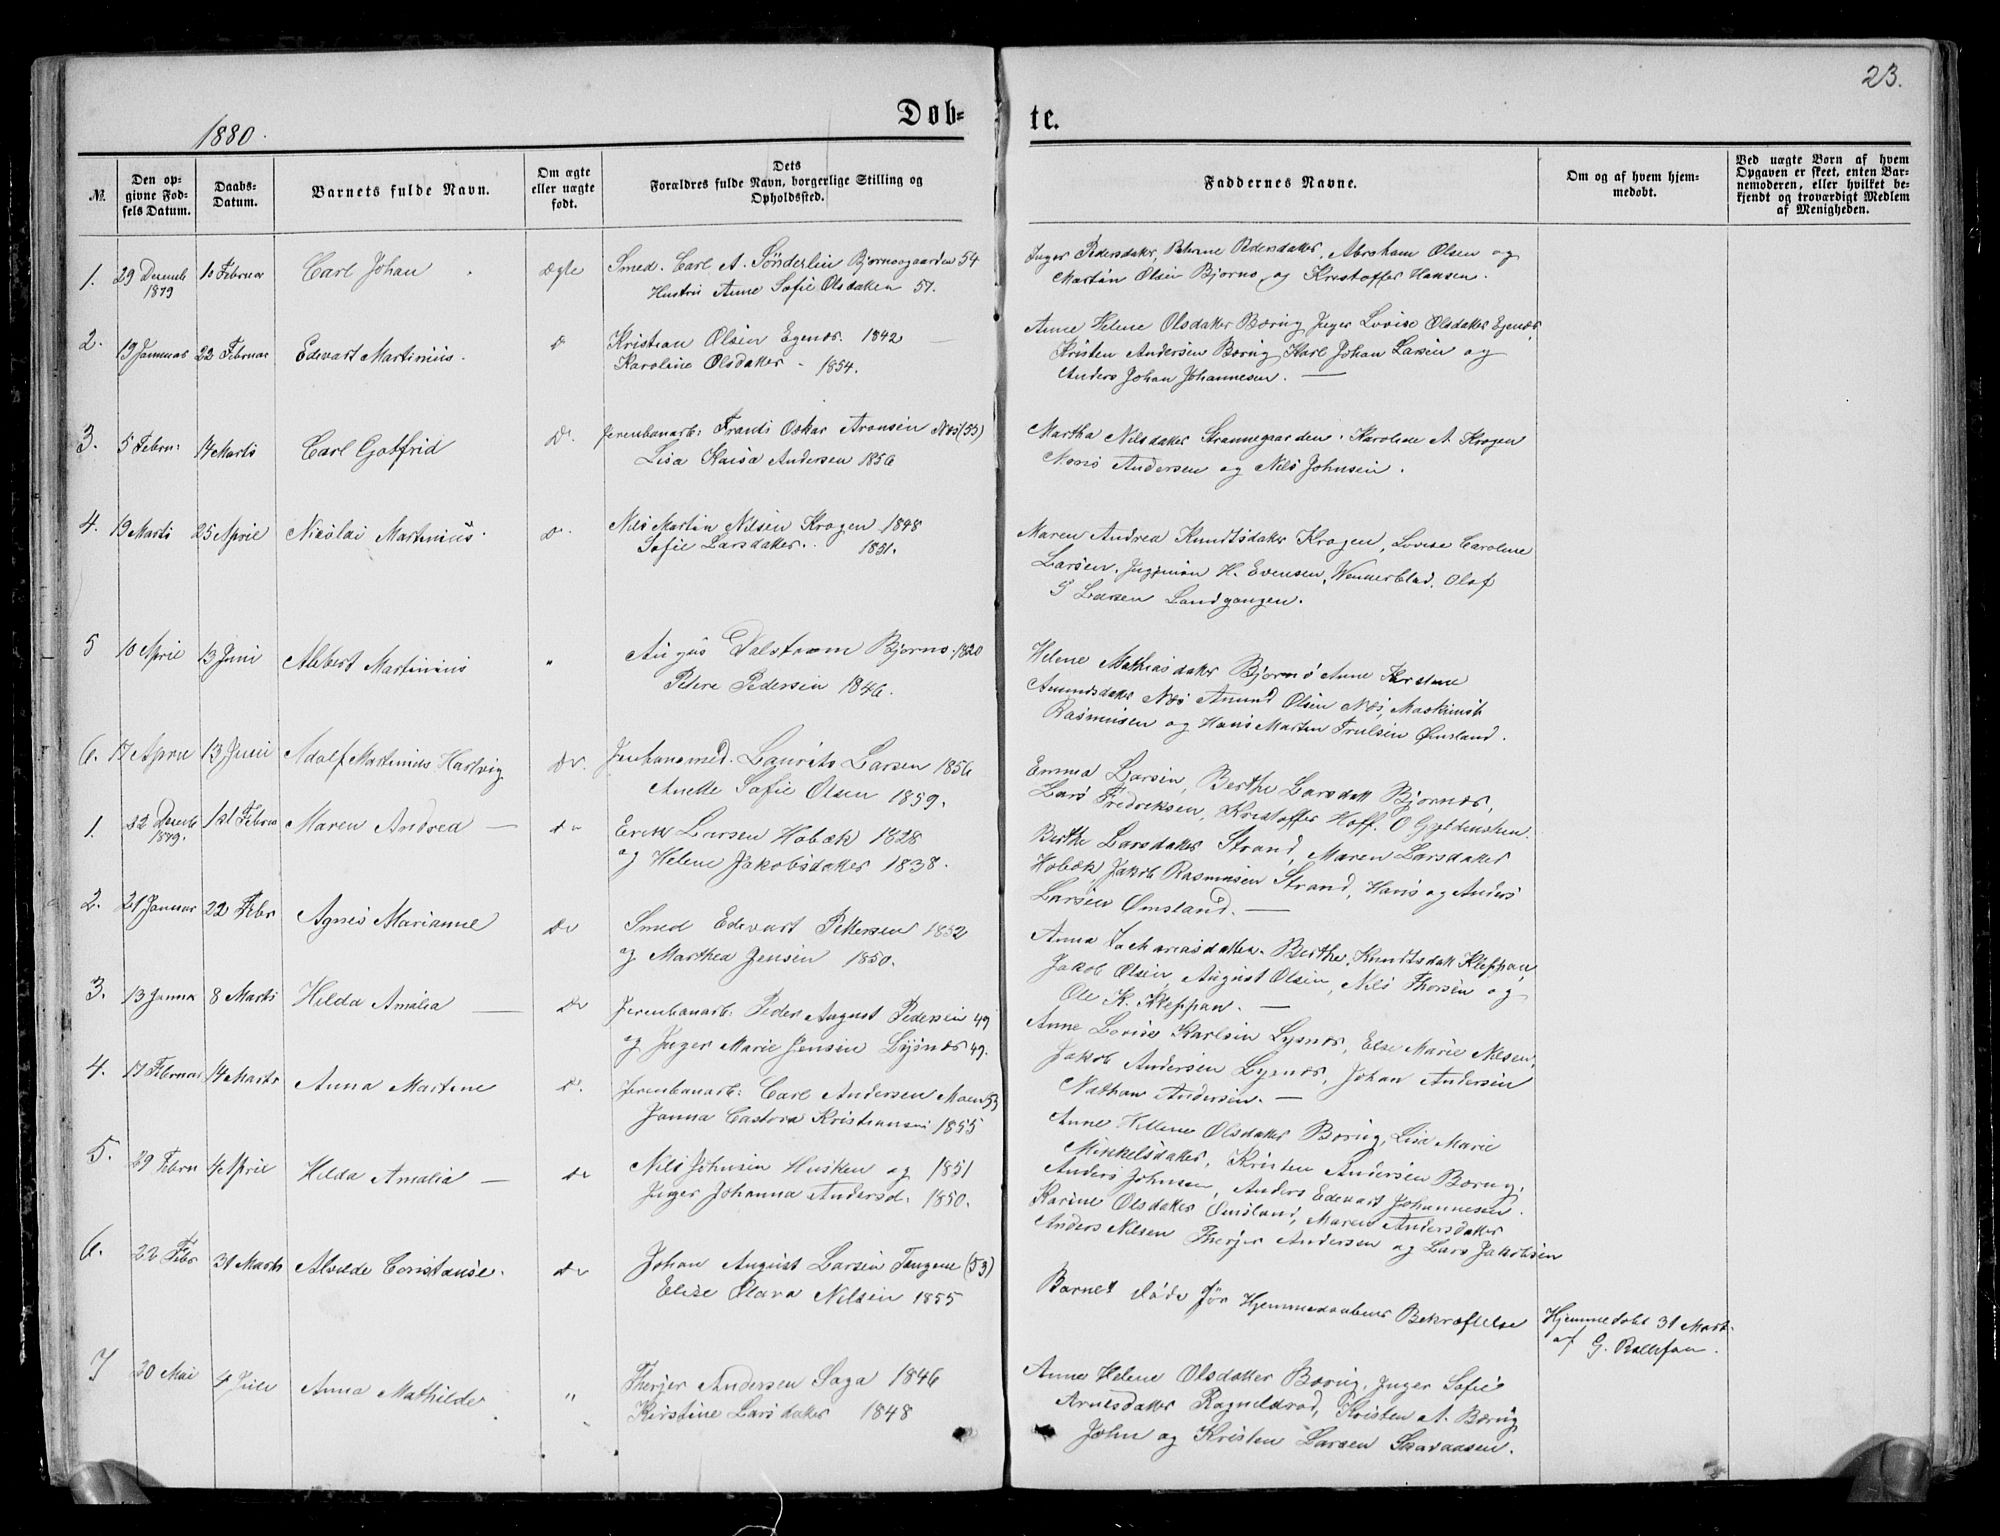 23.
Døb-te.
1880.
№.
Den op-
givne Fød-
sels Datum.
Daabs-
Datum.
Barnets fulde Navn.
Om ægte
eller uægte
født.
Dets
Forældres fulde Navn, borgerlige Stilling og
Opholdssted.
Faddernes Navne.
Om og af hvem hjem-
medøbt.
Ved uægte Børn af hvem
Opgaven er skeet, enten Bar-
nemoderen, eller hvilket be-
kjendt og troværdigt Medlem
af Menigheden.
1. 29 Decemb 1879 Februar Carl Johan Ægte
Smed. Carl A. Sönderlin 54
Hustru Anne Sofie Olsdatter 57.
Inger Pedersdatter, Pedersdatter, Abraham Olsen og
Martin Olsen Bjørnø, og Kristoffer Hansen.
2. 19 Januar 22 Februar Edevart Martinius. Do
Kristian Olsen Egenæs. 1842
Karoline Olsdatter - 1854.
Anne Helene Olsdatter Børug, Inger Lovise Olsdatter Egenæs,
Kristen Andersen Børug, Karl Johan Larsen og
Anders Johan Johannesen. —
3. 5 Febru: 14 Marts Carl Gotfrid Do.
Jerenbanarb: Frants Oskar Aronsen Næs (55)
Lisa Kaisa Andersen 1856
Martha Nilsdatter Karolene A. Krogen
Andersen og Nils Johnsen.
4. 19 Marts 25 April Nicolai Martinius. Do.
Nils Martin Nilsen Krogen 1848
Sofie Larsdatter. 1851.
Maren Andrea Knudtsdatter Krogen, Lovise Caroline
Larsen, H. Evensen, Olaf
Larsen Landgangen.
5 10 April 13 Juni Albert Martinius "
Dalstrøm Bjørnø. 1820
Petere Pedersen 1846.
Helene Mathiasdatter Bjørnø Anne
Amundsdatter Næs Amund Olsen Næs, Maskinist
Rasmussen og Hans Martin Trulsen Ømsland.
6. 17 April 13 Juni Adolf Martinius Hartvig Do.
Laurits Larsen 1856
Anette Sofie Olsen 1859.
Emma Larsen, Berthe Larsdatt Bjørnæs,
Lars Fredriksen, Kristoffer Hoff. O
1. 22 Decemb 1879. 1st Februa Maren Andrea — Do
Erik Larsen Hobæk 1828
og Helene Jakobsdatter 1838.
Berthe Larsdatter Strand, Maren Larsdatter
Hobæk, Jakob Rasmusen Strand, Hans og Anders
Larsen Ømsland. —
2. 21 Januar 22 Febr Agnes Marianne Do
Smed Edevart Pettersen 1852
og Marthea Jensen 1850.
Anna Zachariasdatter. Berthe Knudtsdatt Kleppan,
Jakob Olsen, August Olsen, Nils Thorsen og
Ole K. Kleppan. —
3. 13 Janua 8 Marts Hilda Amalia — Do
Jerenbanarb: Peder August Pedersen 49
og Inger Marie Jensen Lysnæs 49.
Anne Lovise Karlsen Lysnæs, Else Marie Nilsen,
Jakob Andersen Lysnæs, Johan Andersen
Nathan Andersen. —
4. 17 Februar 14 Marts Anna Martine Do.
Jerenbanarb: Carl Andersen Moen 53
Janna Castora Kristiansen 1855
Anne Helene Olsdatter Børug, Lise Marie
Mikkelsdatter, Kristen Andersen Børug,
Anders Johnsen, Anders Edevart Johannesen.
5. 29 Febru 4 April Hilda Amalia — Do
Nils Johnsen Husken og 1851
Inger Johanna Andersd. 1850.
Karine Olsdatter Ømsland, Maren Andersdatter
Anders Nilsen Therjer Andersen og Lars Jakobsen
6. 22 Febr 31 Marts Alvilde Constanse. Do
Johan August Larsen Tangene (53)
Elise Clara Nilsen 1855
Barnet døde før Hjemmedaabens Bekræftelse
Hjemmedøbt 31 Mart.
af G.
7 20 Mai 4 Juli Anna Mathilde "
Therjer Andersen Saga 1846
Kirstine Larsdatter 1848
Anne Helene Olsdatter Børug, Inger Sofie
Arnesdatter Kristen A. Børug
John og Kristen Larsen